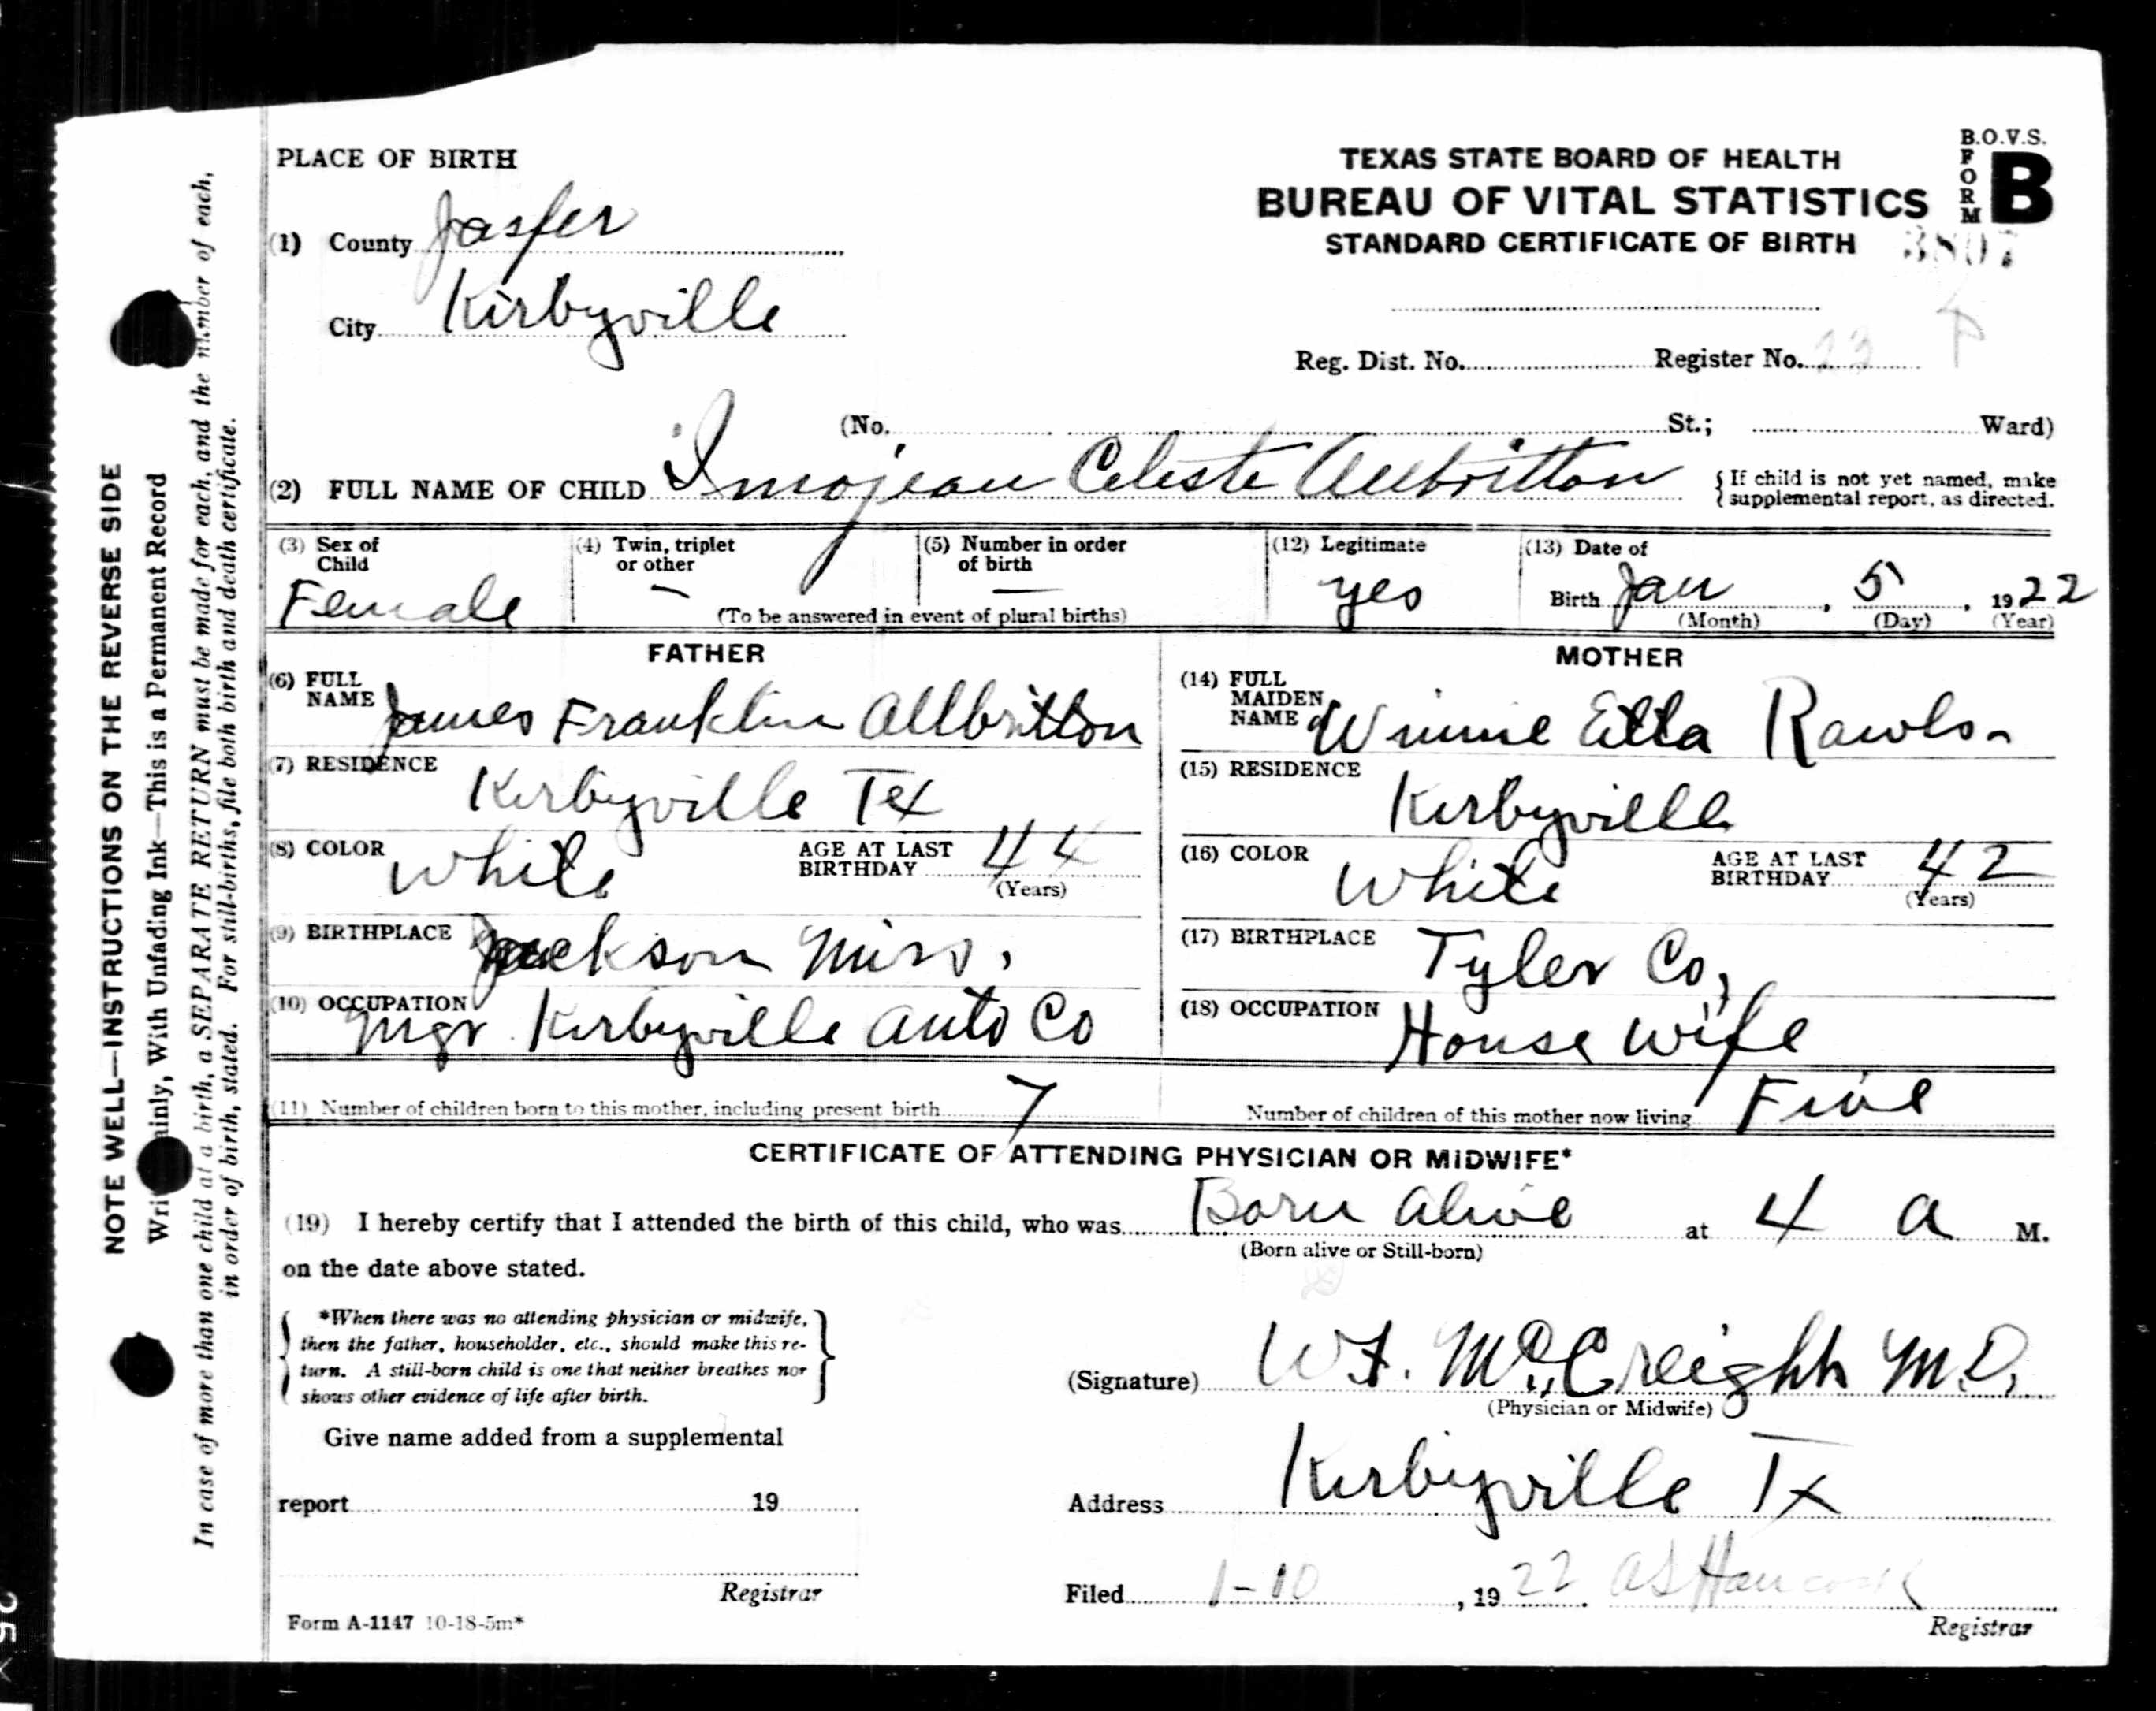 PLACE OF BIRTH
(1) County Jasper
City Kirbyville
TEXAS STATE BOARD OF HEALTH
BUREAU OF VITAL STATISTICS
STANDARD CERTIFICATE OF BIRTH
B.O.V.S.
FORM B
3807
Reg. Dist. No. Register No. 23
(No. St.; Ward)
(2) FULL NAME OF CHILD Imojean Celeste Allbritton
{If child is not yet named, make
supplemental report, as directed.
(3) Sex of Child Female
(4) Twin, triplet or other –
(5) Number in order of birth —
(To be answered in event of plural births)
(12) Legitimate yes
(13) Date of Birth Jan, 5, 1922
(Month) (Day) (Year)
FATHER
(6) FULL NAME James Franklin Allbritton
(7) RESIDENCE Kirbyville Tex
(8) COLOR White AGE AT LAST BIRTHDAY 44
(Years)
(9) BIRTHPLACE Jackson Miss.
(10) OCCUPATION Mgr Kirbyville Auto Co
MOTHER
(14) FULL MAIDEN NAME Winnie Etta Rawls
(15) RESIDENCE Kirbyville
(16) COLOR White AGE AT LAST BIRTHDAY 42
(Years)
(17) BIRTHPLACE Tyler Co,
(18) OCCUPATION House wife
(11) Number of children born to this mother, including present birth 7 Number of children of this mother now living Five
CERTIFICATE OF ATTENDING PHYSICIAN OR MIDWIFE*
(19) I hereby certify that I attended the birth of this child, who was Born alive at 4 a M.
(Born alive or Still-born)
on the date above stated.
{ *When there was no attending physician or midwife,
then the father, householder, etc., should make this re-
turn. A still-born child is one that neither breathes nor
shows other evidence of life after birth. }
Give name added from a supplemental
report 19
Registrar
Form A-1147 10-18-5m*
(Signature) W.F. McCreight M.D.
(Physician or Midwife)
Address Kirbyville Tx
Filed 1-10, 1922. AS Hancock
Registrar
NOTE WELL—INSTRUCTIONS ON THE REVERSE SIDE
Wri ainly, With Unfading Ink—This is a Permanent Record
In case of more than one child at a birth, a SEPARATE RETURN must be made for each, and the number of each,
in order of birth, stated. For still-births, file both birth and death certificate.